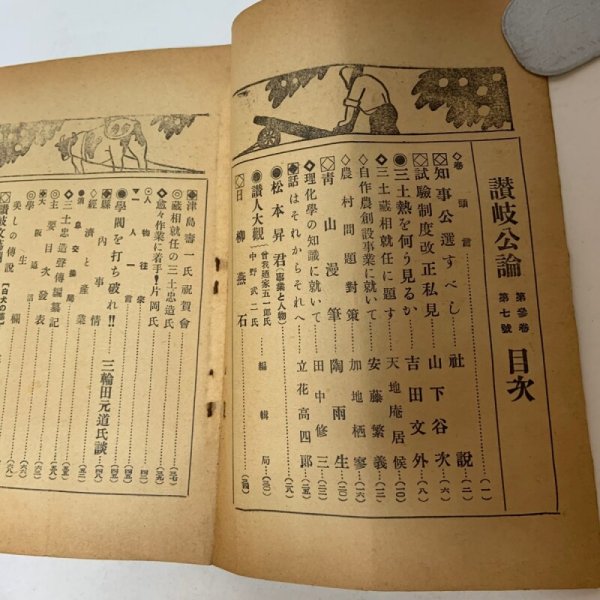 讃岐公論 第參卷 第七號 目次
◇卷頭言……(一)
知事公選すべし……社説(二)
試驗制度改正私見……山下谷次(六)
◉三土熱を何う見るか……吉田文外(八)
◆三土藏相就任に題す……天地庵居候(一〇)
◇自作農創設事業に就いて……安藤繁義(三)
◇農村問題對策……加地栖寥(一六)
靑山漫筆……陶雨生
◇理化學の知識に就いて……田中修三(三)
話はそれからそれへ……立花高四郎(三五)
◉松本昇君(事業と人物)……(二八)
◉讃人大觀 曾我廼家五一郎氏 中野武二氏……編輯局(三)
日柳燕石……(三四)
津島壽一氏祝賀會……(三七)
◎藏相就任の三土忠造氏
◆愈々作業に着手!片岡氏……(三九)
◎人物往來……(四)
▼一人一言
◉學閥を打ち破れ!!……三輪田元道氏談(四八)
縣內事情
◇經濟と產業……(五二)
◉消息交換局
◆三土忠造聲傳編纂記
◎主要目次發表
◎大阪通信
◎學生欄
美しの傳說
讃岐文藝